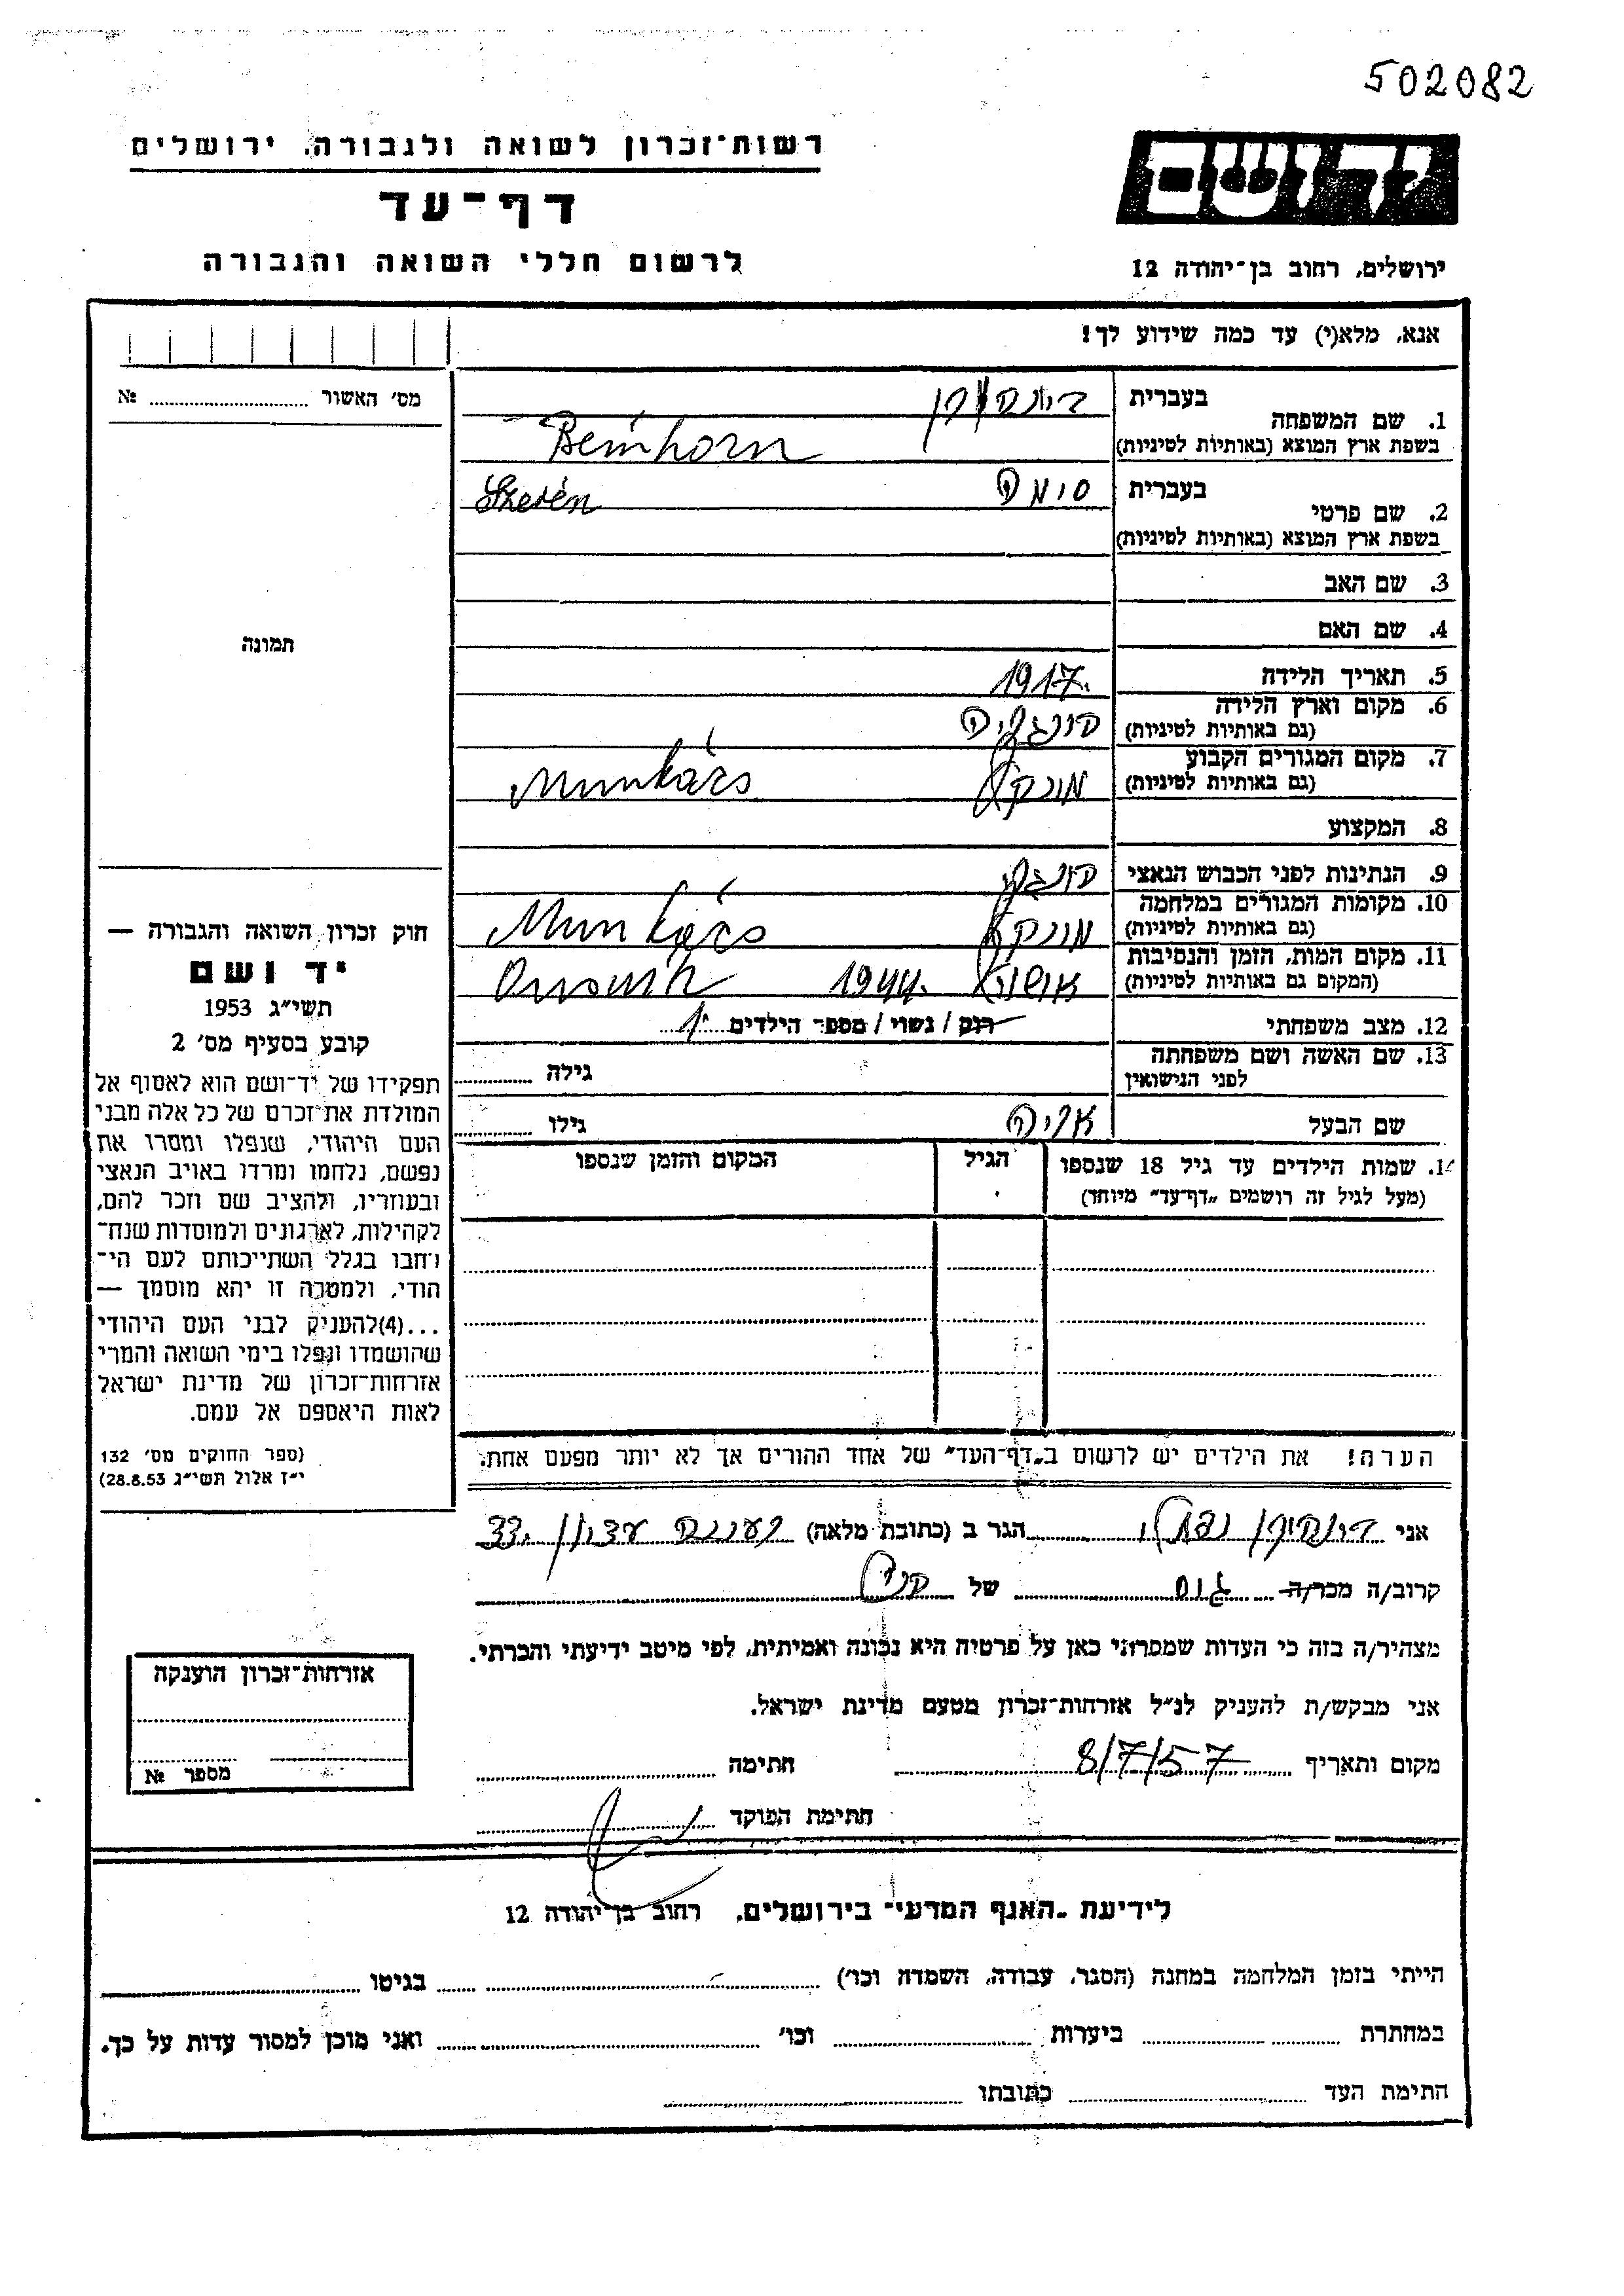 502082
יד ושם
רשות־זכרון לשואה ולגבורה, ירושלים
דף־עד
לרשום חללי השואה והגבורה
ירושלים, רחוב בן־יהודה 12
אנא, מלא(י) עד כמה שידוע לך!
מס׳ האשור № ..........
1. שם המשפחה בעברית
בשפת ארץ המוצא (באותיות לטיניות) Beinhorn
2. שם פרטי בעברית סימה Szerén
בשפת ארץ המוצא (באותיות לטיניות)
3. שם האב
4. שם האם
5. תאריך הלידה 1917.
6. מקום וארץ הלידה הונגריה
(גם באותיות לטיניות)
7. מקום המגורים הקבוע
(גם באותיות לטיניות) Munkács
8. המקצוע
9. הנתינות לפני הכבוש הנאצי
10. מקומות המגורים במלחמה
(גם באותיות לטיניות) Munkács
11. מקום המות, הזמן והנסיבות 1944.
(המקום גם באותיות לטיניות)
12. מצב משפחתי רוק / נשוי / מספר הילדים 1
13. שם האשה ושם משפחתה
לפני הנישואין גילה
שם הבעל גילו
14. שמות הילדים עד גיל 18 שנספו
(מעל לגיל זה רושמים „דף־עד” מיוחד)
הגיל
המקום והזמן שנספו
תמונה
חוק זכרון השואה והגבורה —
יד ושם
תשי״ג 1953
קובע בסעיף מס׳ 2
תפקידו של יד־ושם הוא לאסוף אל
המולדת את זכרם של כל אלה מבני
העם היהודי, שנפלו ומסרו את
נפשם, נלחמו ומרדו באויב הנאצי
ובעוזריו, ולהציב שם וזכר להם,
לקהילות, לארגונים ולמוסדות שנח־
רחבו בגלל השתייכותם לעם הי־
הודי, ולמטרה זו יהא מוסמך —
...(4)להעניק לבני העם היהודי
שהושמדו ונפלו בימי השואה והמרי
אזרחות־זכרון של מדינת ישראל
לאות היאספם אל עמם.
(ספר החוקים מס׳ 132
י״ז אלול תשי״ג 28.8.53)
הערה! את הילדים יש לרשום ב„דף־העד” של אחד ההורים אך לא יותר מפעם אחת.
אני נפתלי הגר ב (כתובת מלאה) 33
קרוב/ה מכר/ה גיס של
מצהיר/ה בזה כי העדות שמסרתי כאן על פרטיה היא נכונה ואמיתית, לפי מיטב ידיעתי והכרתי.
אני מבקש/ת להעניק לנ״ל אזרחות־זכרון מטעם מדינת ישראל.
מקום ותאריך 8/7/57 חתימה
חתימת הפוקד
אזרחות־זכרון הוענקה
מספר №
לידיעת „האגף המדעי” בירושלים, רחוב בן־יהודה 12
הייתי בזמן המלחמה במחנה (הסגר, עבודה, השמדה וכו׳) בגיטו
במחתרת ביערות וכו׳ ואני מוכן למסור עדות על כך.
התימת העד כתובתו